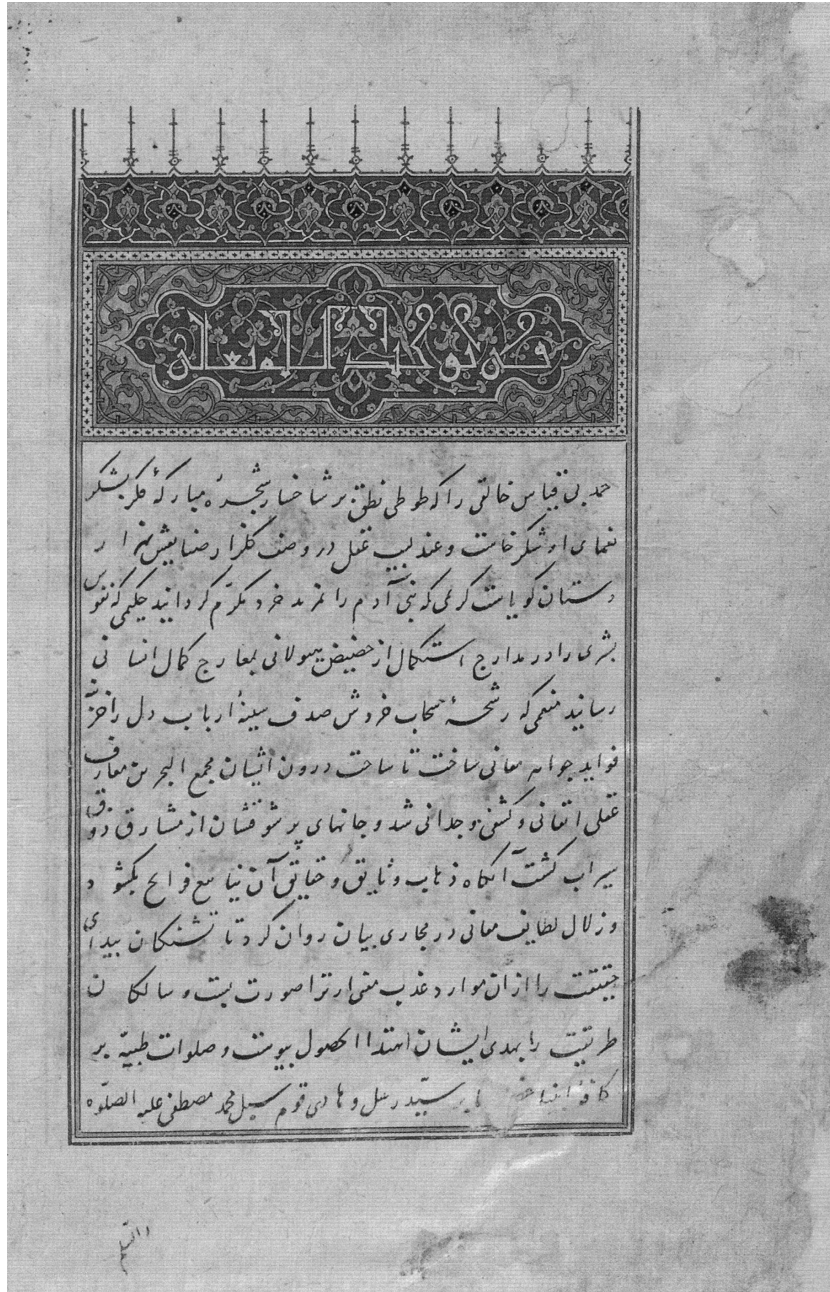 حمد بی قیاس خالقی را که طوطی نطق بر شاخسار شجرهٔ مبارکهٔ فکر بشکر
نعمای او شکرخاست و عندلیب عقل در وصف گلزار صنایعش هزار
دستان گویاست کریمی که بنی آدم را بمزید خرد مکرّم گردانید حکیمی که نفوس
بشری را در مدارج استکمال از حضیض هیولانی بمعارج کمال انسانی
رسانید منعمی که رشحهٔ سحاب خروش صدف سینهٔ ارباب دل را
فواید جواهر معانی ساخت تا ساحت درون ایشان مجمع البحرین معارف
عقلی اتقانی و کشفی وجدانی شد و جانهای پر شوقشان از مشارق ذوق
سیراب گشت آنگاه ذهاب وثایق و حقایق آن ینابیع فواتح بگشود
و زلال لطایف معانی در مجاری بیان روان کرد تا تشنگان بیدای
حقیقت را از ان موارد عذب معنی ارتوا صورت بست و سالکان
طریقت را بهدی ایشان اهتدا بحصول پیوست و صلوات طیبه بر
کافهٔ انبیا بر سیّد رسل و هادی قوم سبل محمد مصطفی علیه الصلوه
والسلم